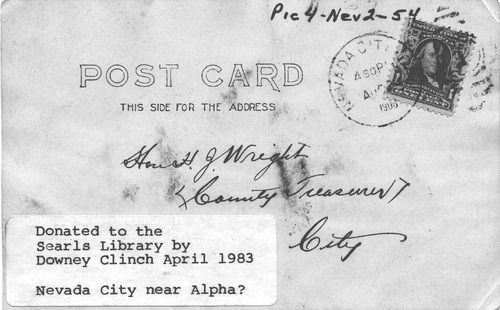 Pic 4-Nev2-54
NEVADA CITY
430P
AUG
1906
POST CARD
THIS SIDE FOR THE ADDRESS
Hon H. J. Wright
County Treasurer
City
Donated to the
Searls Library by
Downey Clinch April 1983
Nevada City near Alpha?